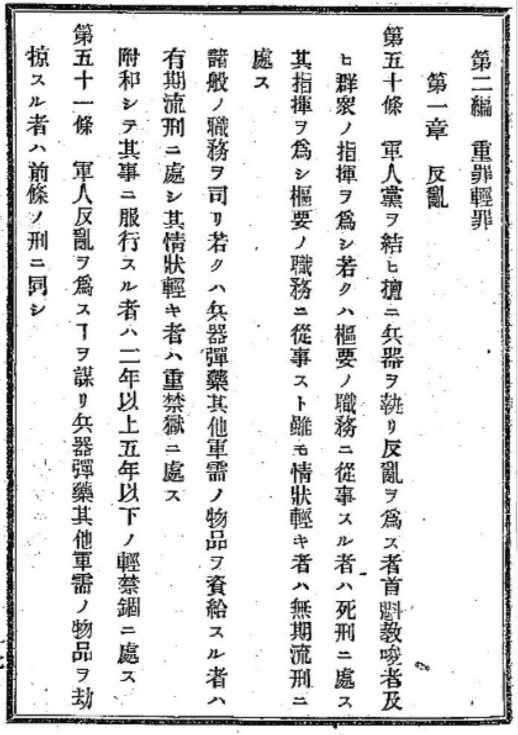 第二編　重罪輕罪
第一章　反亂
第五十條　軍人黨ヲ結ヒ擅ニ兵器ヲ執リ反亂ヲ爲ス者首魁敎唆者及
ヒ群衆ノ指揮ヲ爲シ若クハ樞要ノ職務ニ從事スル者ハ死刑ニ處ス
其指揮ヲ爲シ樞要ノ職務ニ從事スト雖モ情狀輕キ者ハ無期流刑ニ
處ス
諸般ノ職務ヲ司リ若クハ兵器彈藥其他軍需ノ物品ヲ資給スル者ハ
有期流刑ニ處シ其情狀輕キ者ハ重禁獄ニ處ス
附和シテ其事ニ服行スル者ハ二年以上五年以下ノ輕禁錮ニ處ス
第五十一條　軍人反亂ヲ爲スヿヲ謀リ兵器彈藥其他軍需ノ物品ヲ劫
掠スル者ハ前條ノ刑ニ同シ